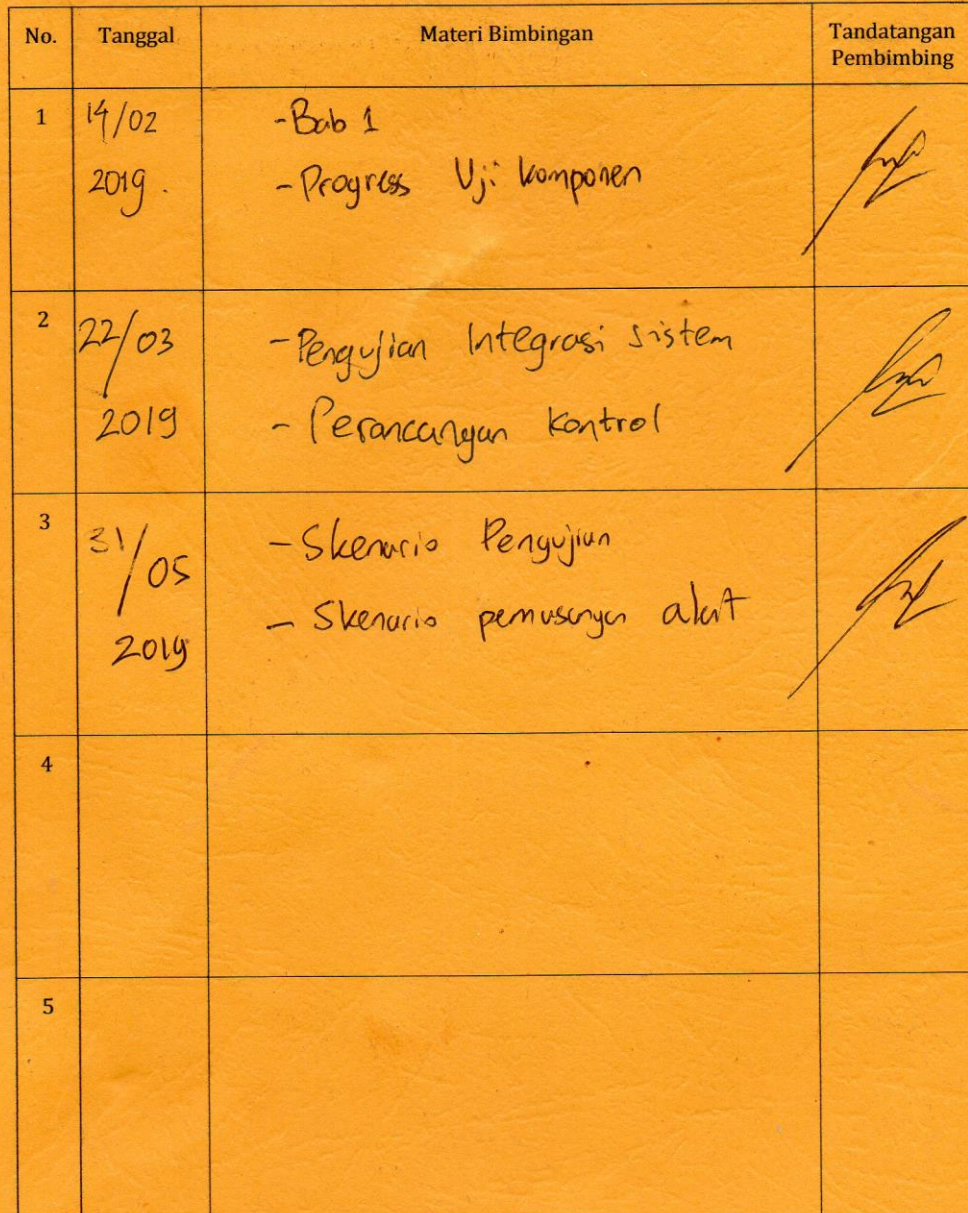 No. Tanggal Materi Bimbingan Tandatangan
Pembimbing
1 14/02 -Bab 1
2019. -Progress Uji komponen
2 22/03 -Pengujian Integrasi sistem
2019 - Perancangan kontrol
3 31/05 -Skenario Pengujian
2019 - Skenario pemasangan alat
4
5